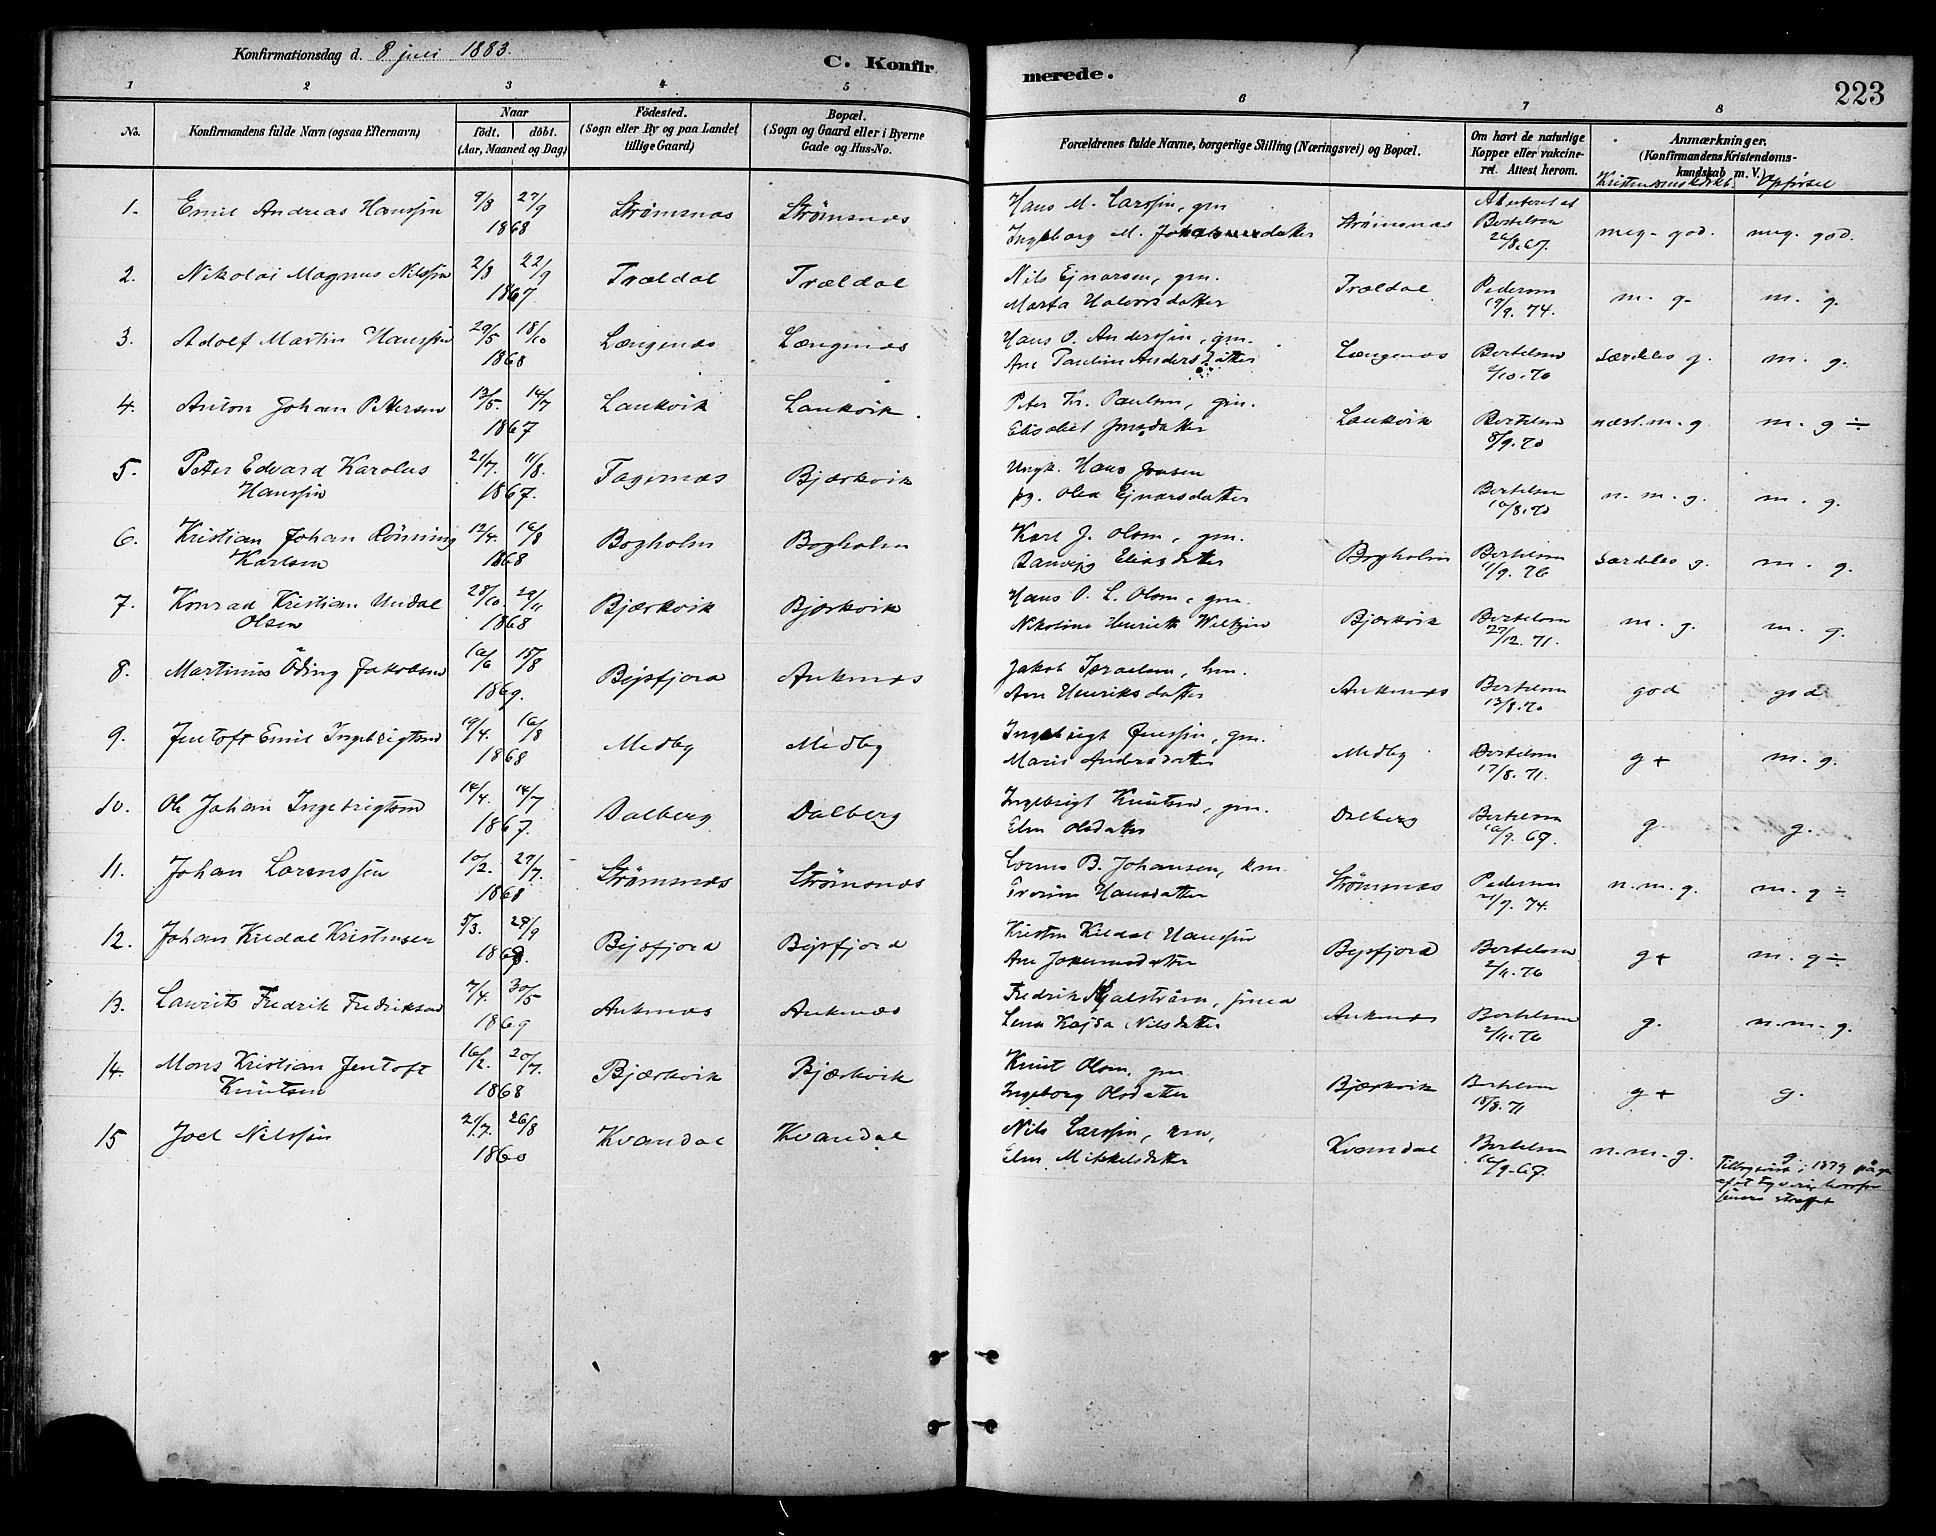 Konfirmationsdag d. 8 juli 1883.
C. Konfirmerede.
223
1 2 3 4 5 6 7 8
No.
Konfirmandens fulde Navn (ogsaa Efternavn)
Naar
födt. döbt.
(Aar, Maaned og Dag)
Födested.
(Sogn eller By og paa Landet
tillige Gaard)
Bopæl.
(Sogn og Gaard eller i Byerne
Gade og Hus-No.
Forældrenes fulde Navne, borgerlige Stilling (Næringsvei) og Bopæl.
Om havt de naturlige
Kopper eller vakcine-
ret. Attest herom.
Anmærkninger.
(Konfirmandens Kristendoms-
kundskab m. V.)
Opførsel
1. Emil Andreas Hanssen 9/8 27/9 1868 Strømsnæs Strømsnæs
Hans M. Larssen, gm
Ingeborg M. Strømsnæs Bertelsen 26/8.67. meg. god. meg. god.
2. Nikolai Magnus Nilssen 2/8 22/9 1867 Trældal Trældal
Nils Ejnarsen, gm.
Marta Halvorsdatter Trældal Pedersen 19/9. 74. m. g. m. g.
3. Adolf Martin Hanssen 29/5 18/10 1868 Længenæs Længenæs
Hans O. Anderssen, gm.
Ane Pauline Andersdatter Længenæs Bertelsen 2/10.70 særdeles g. m. g.
4. Anton Johan Petersen 13/5. 14/7 1867 Lankvik Lankvik.
Peter Kr. Paulsen, gm.
Elisabet Jonsdatter Lankvik Bertelsen 8/9.70 næst. m. g. m. g ÷
5. Peter Edvard Karolus
Hanssen 21/7. 11/8. 1867. Fagernæs Bjærkvik
Ungk. Hans Jensen
pg. Olea Ejnarsdatter Bertelsen 10/8.70 n. m. g. m. g.
6. Kristian Johan Rönning
Karlsen 12/4. 16/8 1868 Bogholm Bogholm
Karl J. Olsen, gm.
Eliasdatter Bogholm Bertelsen 1/9. 76 særdeles g. m. g.
7. Konrad Kristian Undal
Olsen 28/10. 29/11 1868 Bjærkvik Bjærkvik
Hans O. L. Olsen, gm.
Nikoline Henriette Bjærkvik Bertelsen 27/12.71. m. g. m. g.
8. Martinus Öding Jakobsen 16/6 15/8 1869. Bejsfjord Ankenæs
Jakob Israelsen, hm.
Ane Henriksdatter Ankenæs Bertelsen 13/8.70 god god
9. Jentoft Emil Ingebrigtsen 19/4. 16/8 1868 Medby Medby
Ingebrigt Jenssen, gm.
Marie Andersdatter Medby Bertelsen 17/8.71. g + m. g.
10. Ole Johan Ingebrigtsen 14/4. 14/7 1867. Dalberg Dalberg
Ingebrigt Knutsen, gm.
Elen Olsdatter Dalberg Bertelsen 16/9.67. g. g.
11. Johan Lorenssen 10/2. 27/7. 1868 Strömsnæs Strömsnæs
Lorens B. Johansen, km.
Hansdatter Strømsnæs Pedersen 21/9. 74. n. m. g. m. g ÷
12. Johan Kristensen 5/3. 29/9 Bejsfjord Bejsfjord
Kristen Kildal Hanssen
Ane Johannesdatter Bejsfjord Bertelsen 2/11.76 g + m. g ÷.
13. Laurits Fredrik Fredriksen 7/4. 30/5 1869 Ankenæs Ankenæs
Fredrik
Lena Kajsa Nilsdatter Ankenæs Bertelsen 2/11.76 g. n. m. g.
14. Mons Kristian Jentoft
Knutsen 16/2. 20/7. 1868 Bjærkvik Bjærkvik
Knut Olsen, gm.
Ingeborg Olsdatter Bjærkvik Bertelsen 18/8.71 g + g.
15 Joel Nilssen 21/7. 26/8 1860 Kvandal Kvandal
Nils Larssen,
Elen Mikkelsdatter Kvandal Bertelsen 16/9.67. n. m. g. g.
i 1879
straffet